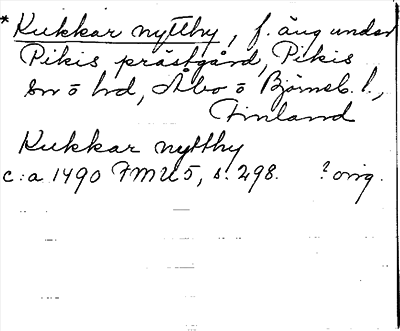 * Kukkar nyttby, f. äng under
Pikis prästgård, Pikis
sn o hd, Åbo o Björneb. l.,
Finland
Kukkar nyttby
c:a 1490 FMU 5, s. 298. ? orig.